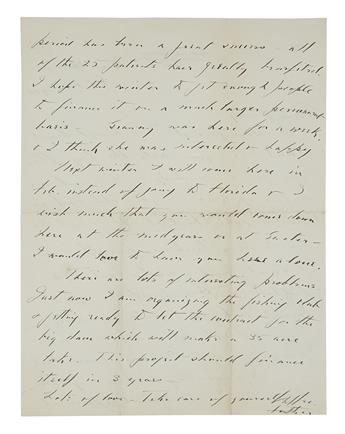 period has been a great success – all
of the 23 patients have greatly benefited.
I hope this winter to get enough people
to finance it on a much larger permanent
basis – was here for a week
& I think she was interested & happy
Next winter I will come here in
Feb. instead of going to Florida & I
wish much that you would come down
here at the midyears or at Easter –
I would love to have you here alone.
There are lots of interesting problems
Just now I am organizing the fishing club
& getting ready to let the contract for the
big dam which will make a 35 acre
lake. This project should finance
itself in 3 years
Lots of love – Take care of yourself
Father